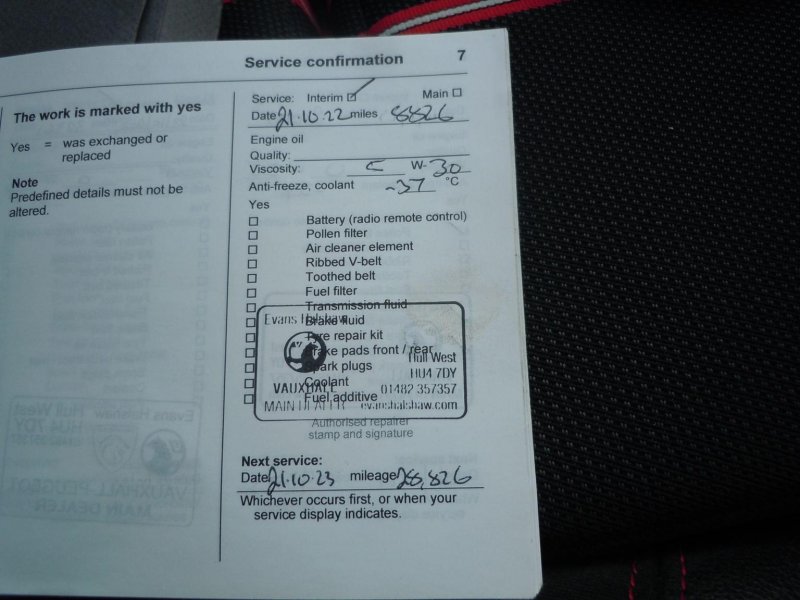 Service confirmation 7
The work is marked with yes
Yes = was exchanged or
replaced
Note
Predefined details must not be
altered.
Service: Interim ☑ Main ☐
Date 21.10.22 miles 8826
Engine oil
Quality:
Viscosity: W- 30
Anti-freeze, coolant -37 °C
Yes
☐ Battery (radio remote control)
☐ Pollen filter
☐ Air cleaner element
☐ Ribbed V-belt
☐ Toothed belt
☐ Fuel filter
☐ Transmission fluid
☐ Brake fluid
☐ Tyre repair kit
☐ Brake pads front / rear
☐ Spark plugs
☐ Coolant
☐ Fuel additive
Evans Halshaw
VAUXHALL
MAIN DEALER
Hull West
HU4 7DY
01482 357357
evanshalshaw.com
Authorised repairer
stamp and signature
Next service:
Date 21.10.23 mileage 28,826
Whichever occurs first, or when your
service display indicates.
Evans Halshaw Hull West
HU4 7DY
VAUXHALL PEUGEOT
MAIN DEALER